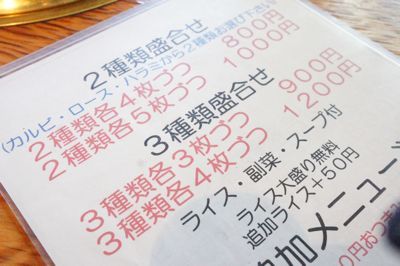 2種類盛合せ
(カルビ・ロース・ハラミから2種類お選び下さい)
2種類各4枚づつ 800円
2種類各5枚づつ 1000円
3種類盛合せ
3種類各3枚づつ 900円
3種類各4枚づつ 1200円
ライス・副菜・スープ付
ライス大盛り無料
追加ライス+50円
追加メニュー
0円おつまみ